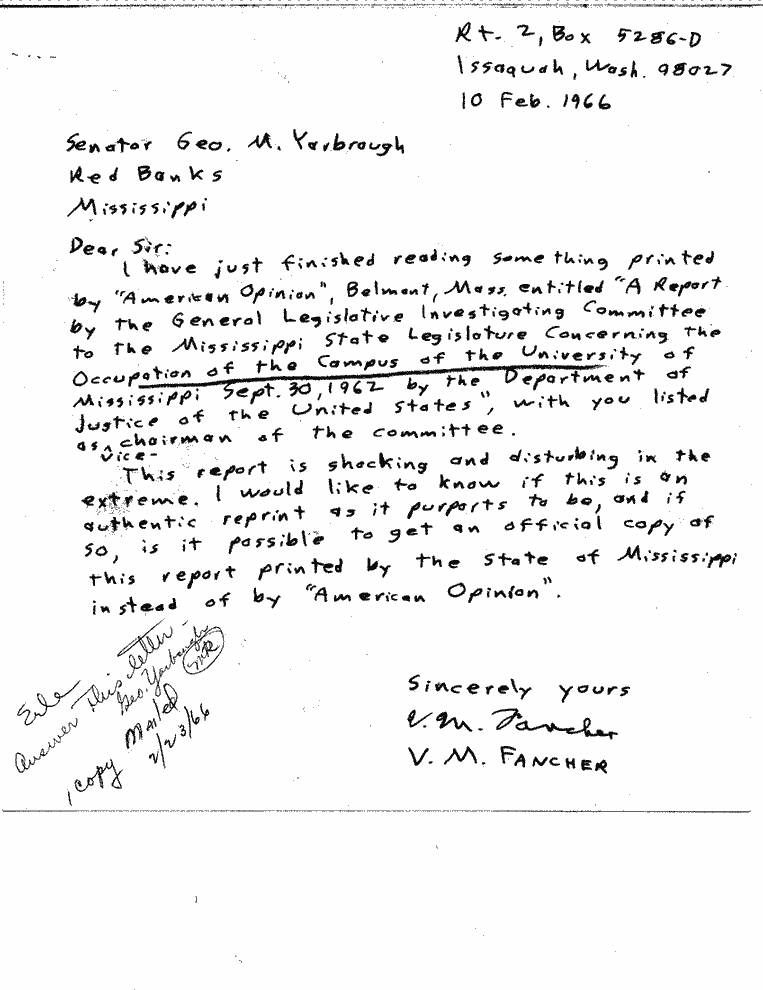 Rt. 2, Box 5286-D
Issaquah, Wash. 98027
10 Feb. 1966
Senator Geo. M. Yarbrough
Red Banks
Mississippi
Dear Sir:
I have just finished reading something printed
by "American Opinion", Belmont, Mass. entitled "A Report
by the General Legislative Investigating Committee
to the Mississippi State Legislature Concerning the
Occupation of the Campus of the University of
Mississippi Sept. 30, 1962 by the Department of
Justice of the United States", with you listed
as chairman of the committee.
vice-
This report is shocking and disturbing in the
extreme. I would like to know if this is an
authentic reprint as it purports to be, and if
so, is it possible to get an official copy of
this report printed by the State of Mississippi
instead of by "American Opinion".
Erle
Answer this letter -
Geo. Yarbrough
MR
1 copy Mailed
2/23/66
Sincerely yours
V. M. Fancher
V. M. FANCHER